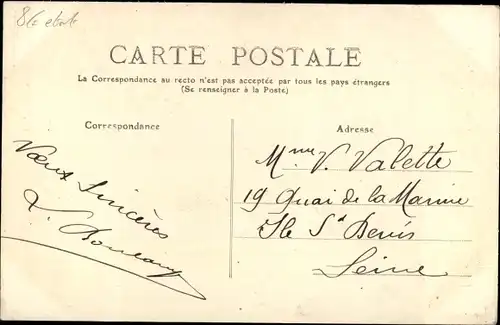 CARTE POSTALE
La Correspondance au recto n'est pas acceptée par tous les pays étrangers
(Se renseigner à la Poste)
Correspondance
Vœux Sincères
Adresse
Mme V. Valette
19 Quai de la Marine
Ile St Denis
Seine